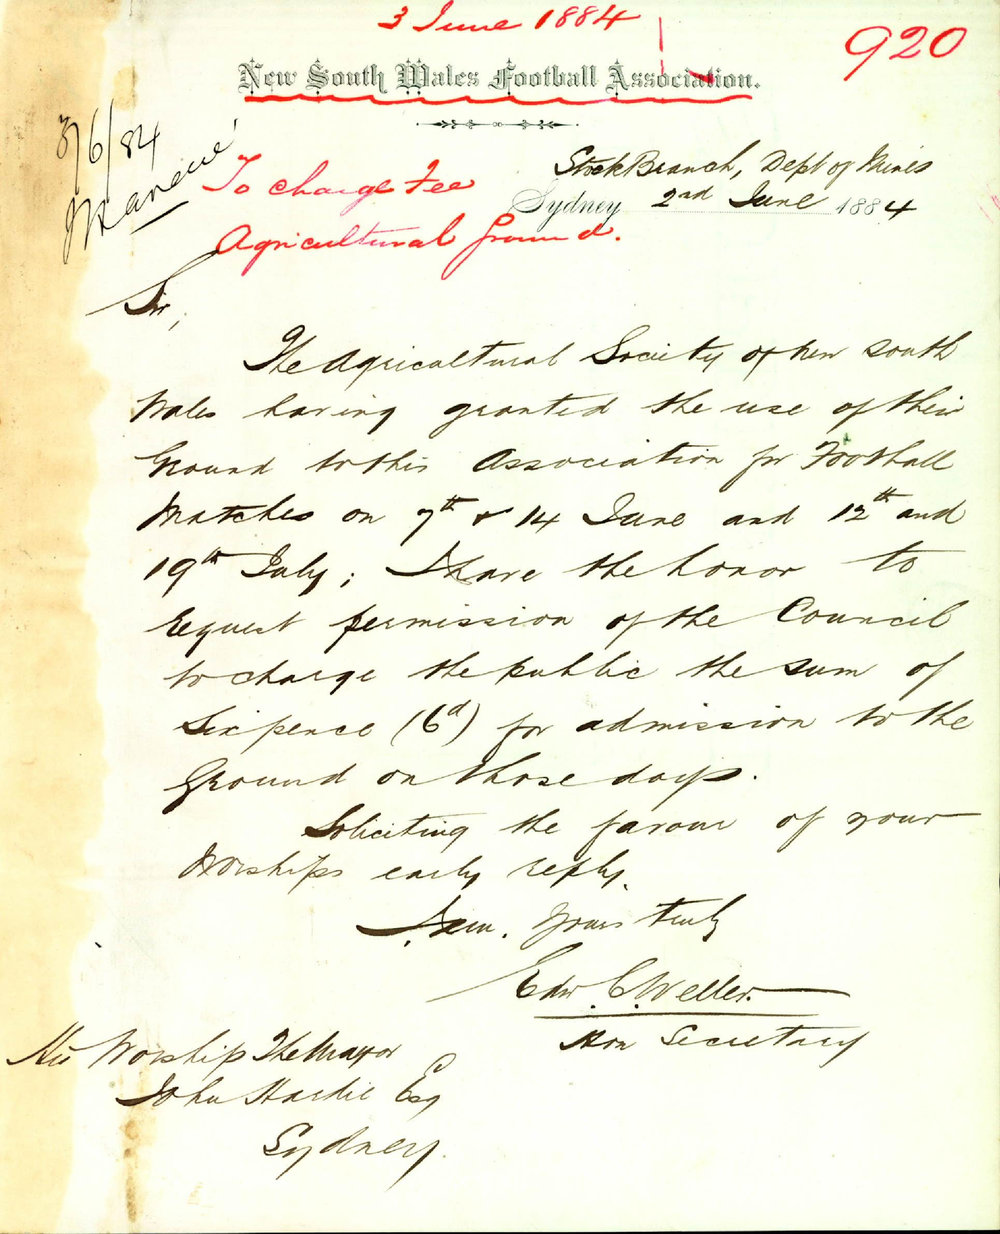 3 June 1884
920
New South Wales Football Association.
3/6/84
To charge Fee
Agricultural Ground.
Stock Branch, Dept of Mines
Sydney 2nd June 1884
Sir,
The Agricultural Society of New South
Wales having granted the use of their
Ground to this Association for Football
Matches on 7th & 14 June and 12th and
19th July; I have the honor to
request permission of the Council
to charge the public the sum of
Sixpence (6d) for admission to the
Ground on those days.
Soliciting the favour of your
Worships early reply.
I am. Yours truly
Edw. C. Weller.
Hon Secretary
His Worship The Mayor
John Hardie Esq
Sydney.